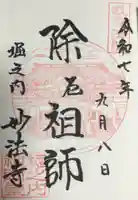 令和七年
九月八日
除厄祖師
堀之内
妙法寺